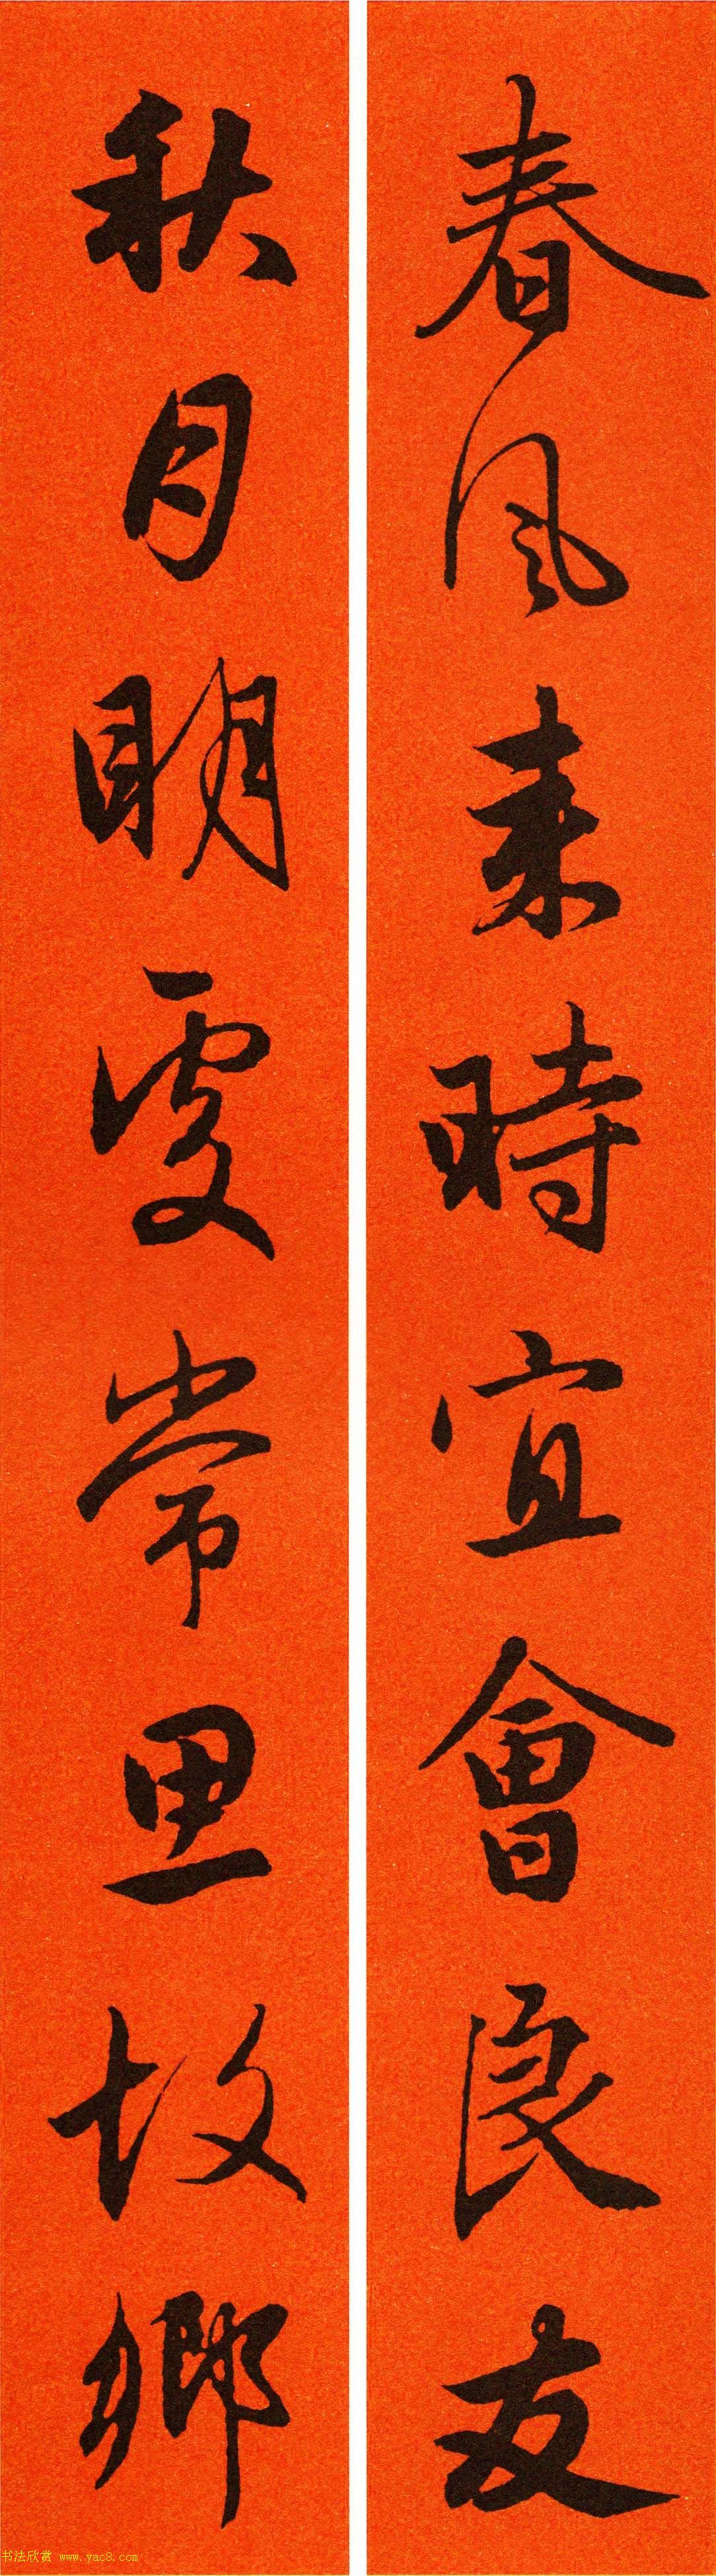 春風来時宜會良友
秋月明處常思故鄉
书法欣赏 www.yac8.com